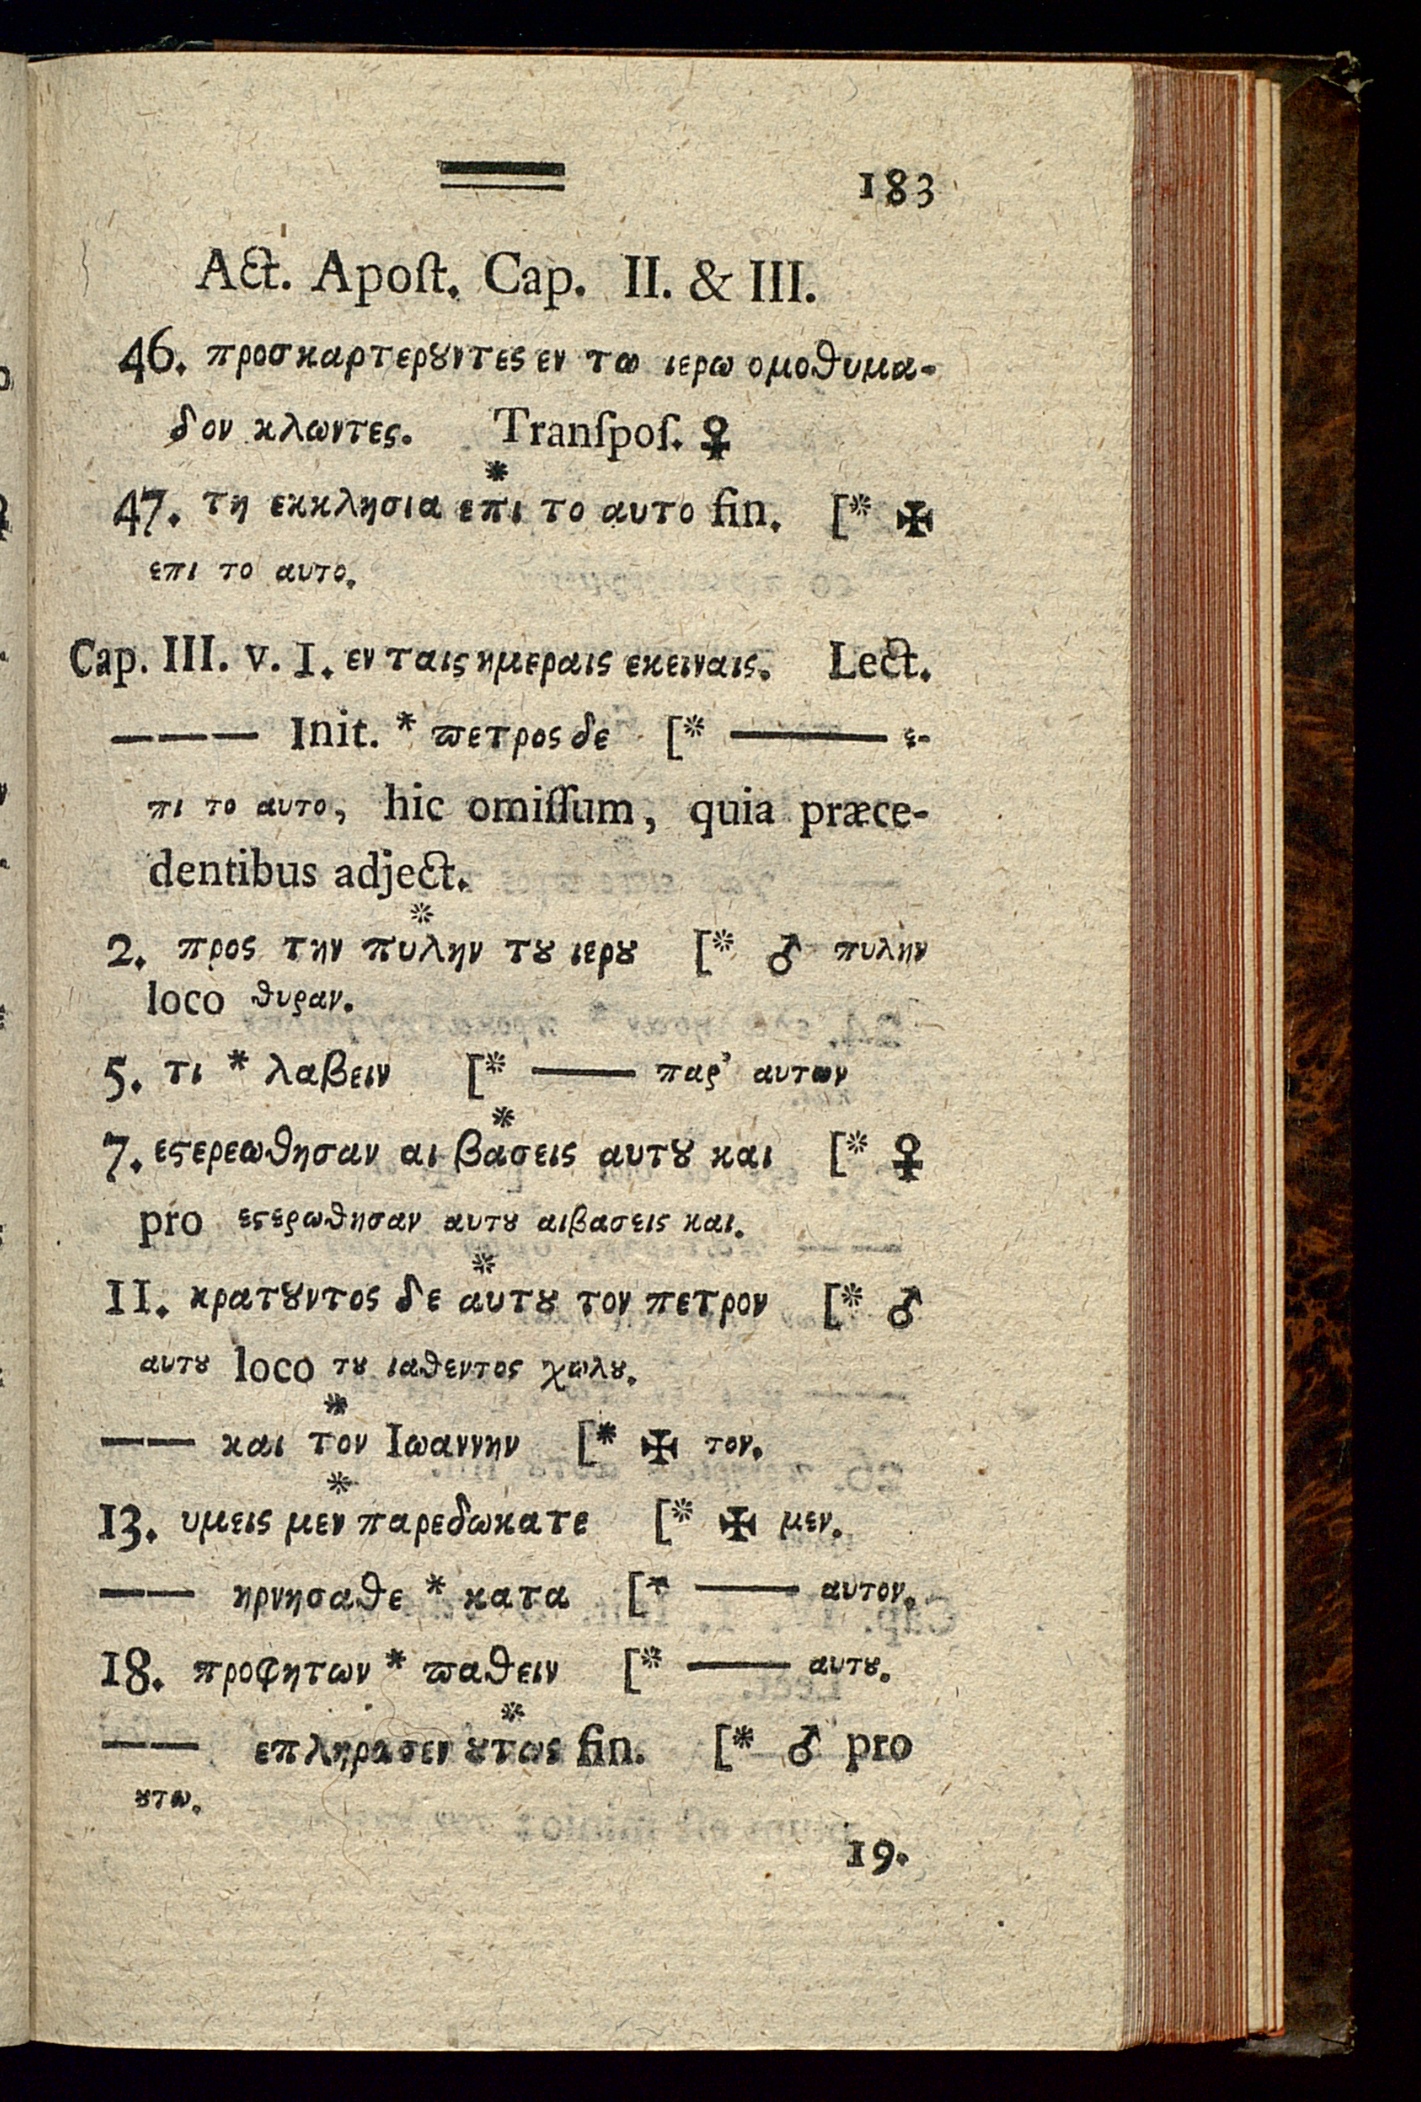 183
Act. Apoſt. Cap. II. & III.
46. προσκαρτερȣντες εν τω ιερω ομοθυμα-
δον κλωντες. Tranſpoſ. ♀
*
47. τη εκκλησια επι το αυτο fin. [* ✠
επι το αυτο.
Cap. III. v. I. εν ταις ημεραις εκειναις. Lect.
——— Init. * ϖετρος δε [* ——— ε-
πι το αυτο, hic omiſſum, quia præce-
dentibus adject.
*
2. προς την πυλην τȣ ιερȣ [* ♂ πυλην
loco θυραν.
5. τι * λαβειν [* —— παρ’ αυτων
*
7. εϛερεωθησαν αι βασεις αυτȣ και [* ♀
pro εϛερωθησαν αυτȣ αιβασεις και.
*
11. κρατȣντος δε αυτȣ τον πετρον [* ♂
αυτȣ loco τȣ ιαθεντος χωλȣ.
*
—— και τον Ιωαννην [* ✠ τον.
*
13. υμεις μεν παρεδωκατε [* ✠ μεν.
—— ηρνησαθε * κατα [* —— αυτον.
18. προφητων * ϖαθειν [* —— αυτȣ.
*
—— επληρασεν ȣτως fin. [* ♂ pro
ȣτω.
19.